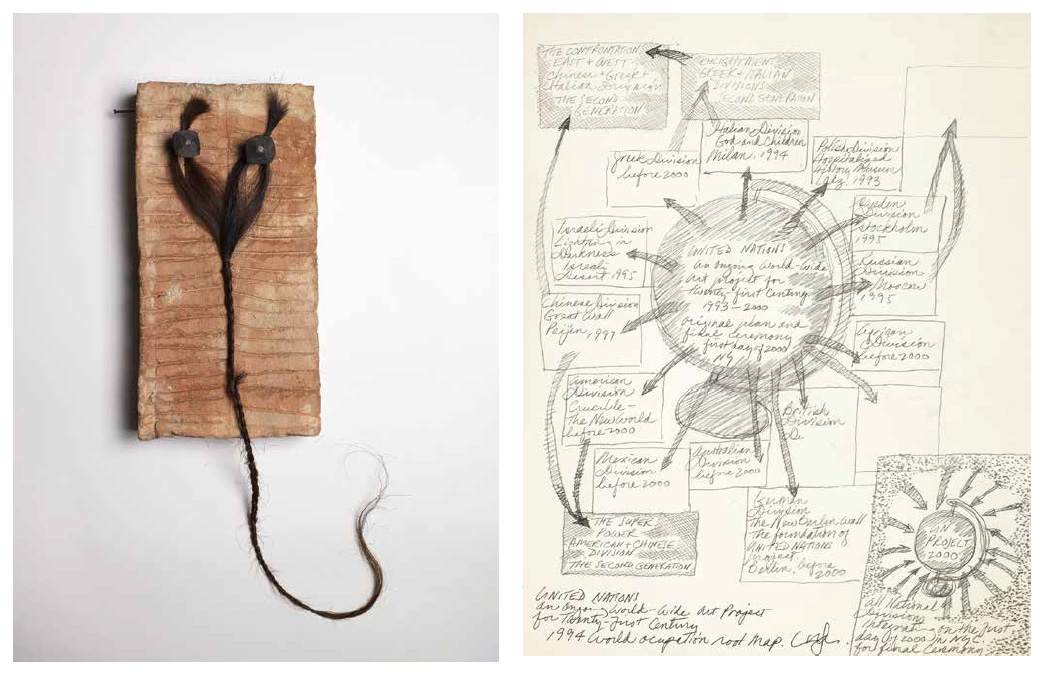 THE CONFRONTATION
EAST + WEST
Chinese + Greek +
Italian
THE SECOND
GENERATION
GREEK + ITALIAN
DIVISIONS
SECOND GENERATION
Greek Division
before 2000
Italian Division
God and Children
Milan, 1994
Polish Division
Hospitalized
History Museum
1993
Division
Stockholm
1995
Russian
Division
Moscow
1995
African
Division
before 2000
Israeli Division
Lightning in
Darkness
Israeli
Desert 1995
Chinese Division
Great Wall
1997
American
Division
Crucible -
the New World
before 2000
Mexican
Division
before 2000
Australian
Division
before 2000
British
Division
German
Division
The New Berlin Wall
the foundation of
UNITED NATIONS
project
Berlin, before
2000
UNITED NATIONS
an ongoing world-wide
Art project for
Twenty-first Century
1993 - 2000
original plan and
final ceremony
first day of 2000
NY
THE SUPER
POWER
AMERICAN + CHINESE
DIVISION
THE SECOND GENERATION
UN
PROJECT
2000
All National
Divisions
on the first
day of 2000 in NYC.
for final Ceremony
UNITED NATIONS
an ongoing World-Wide Art Project
for Twenty-first Century
1994 World ocupation root map.